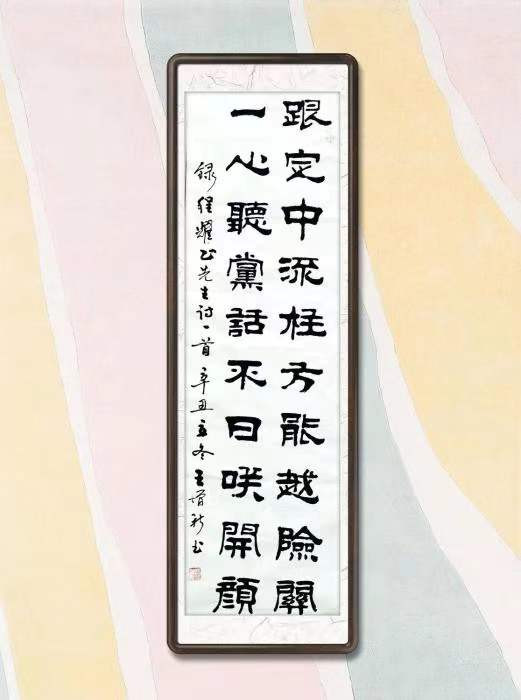 跟定中流柱方能越險關
一心聽黨話不日咲開顏
録程耀正先生詩一首辛丑立冬王增新书